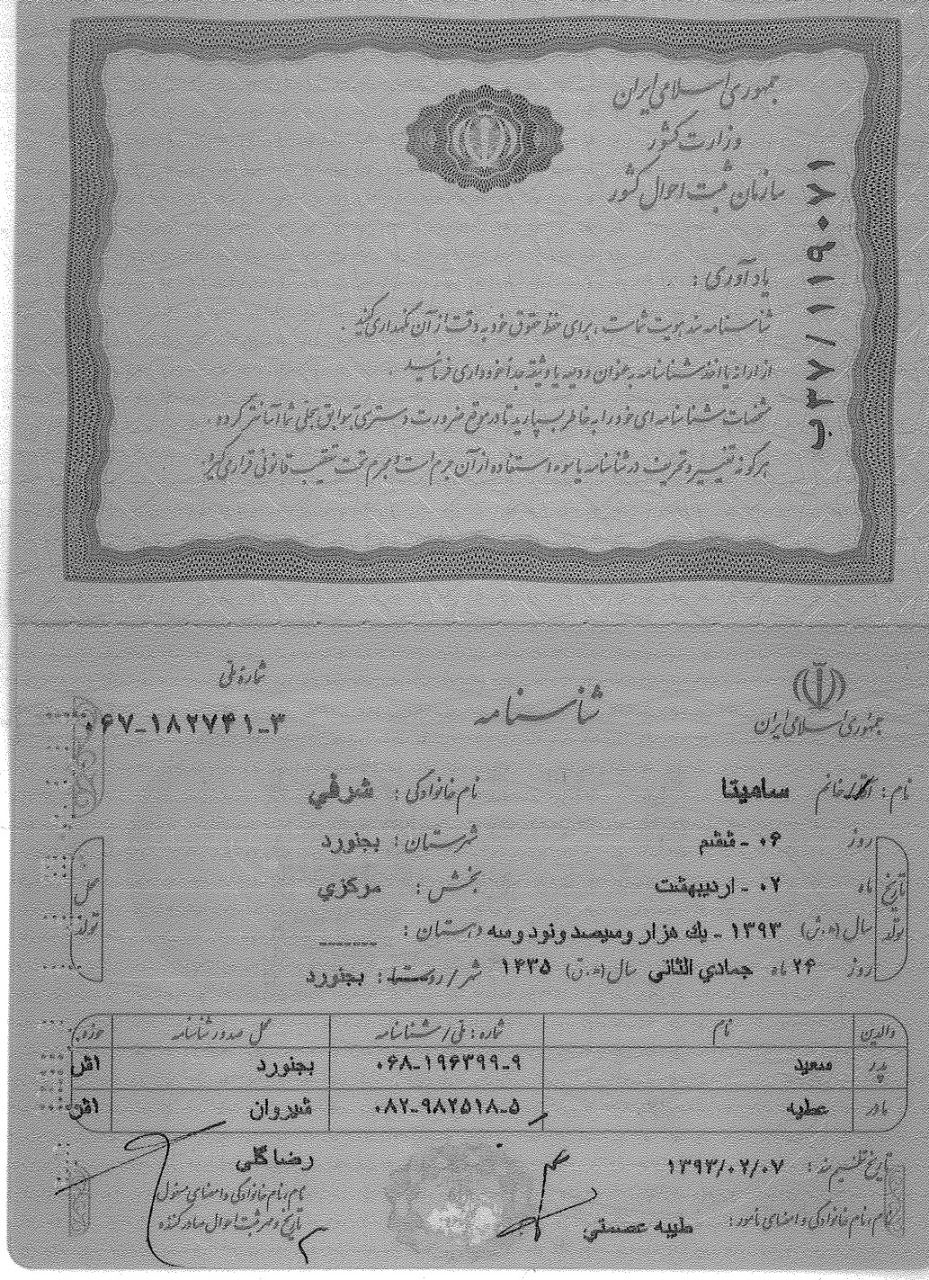 جمهوری اسلامی ایران
وزارت کشور
سازمان ثبت احوال کشور
ب۳۷/۱۱۹۰۷۱
یادآوری :
شناسنامه سند هویت شماست ، برای حفظ حقوق خود به دقت از آن نگهداری کنید .
از ارائه یا اخذ شناسنامه به عنوان ودیعه یا وثیقه جداً خودداری فرمائید .
مشخصات شناسنامه ای خود را به خاطر بسپارید تا در موقع ضرورت دسترسی به سوابق سجلی شما آسانتر گردد .
هرگونه تغییر و تحریف در شناسنامه یا سوء استفاده از آن جرم است و مجرم تحت تعقیب قانونی قرار می گیرد
جمهوری اسلامی ایران
شناسنامه
شماره ملی
۰۶۷-۱۸۲۷۴۱-۳
نام : آقا/خانم سامیتا نام خانوادگی : شرفي
تاریخ تولد
روز ۰۶ - ششم شهرستان : بجنورد
ماه ۰۲ - اردیبهشت بخش : مرکزي
سال (ه.ش) ۱۳۹۳ - یك هزار وسیصد ونود وسه دهستان : -------
روز ۲۶ ماه جمادي الثاني سال (ه.ق) ۱۴۳۵ شهر/روستا : بجنورد
محل تولد
والدین نام شماره : ملی/شناسنامه محل صدور شناسنامه حوزه
پدر سعید ۰۶۸-۱۹۶۳۹۹-۹ بجنورد اش
مادر عطیه ۰۸۲-۹۸۲۵۱۸-۵ شیروان اش
تاریخ تنظیم سند : ۱۳۹۳/۰۲/۰۷ رضا گلی
نام ، نام خانوادگی و امضای مأمور : طیبه عصمتي
نام ، نام خانوادگی و امضای مسئول
تاریخ و مهر ثبت احوال صادر کننده